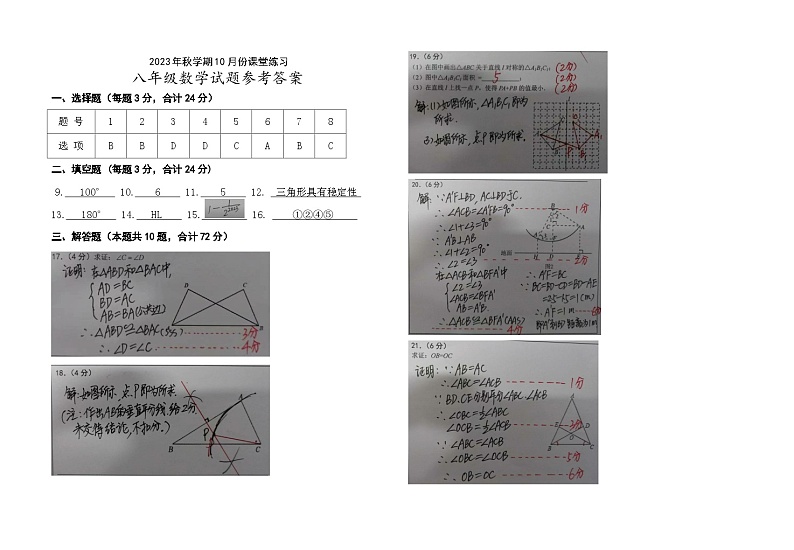 2023年秋学期10月份课堂练习
八年级数学试题参考答案
一、选择题（每题3分，合计24分）
题 号 1 2 3 4 5 6 7 8
选 项 B B D D C A B C
二、填空题（每题3分，合计24分）
9. 100° 10. 6 11. 5 12. 三角形具有稳定性
13. 180° 14. HL 15. 16. ①②④⑤
三、解答题（本题共10题，合计72分）
17.（4分）求证：∠C＝∠D
证明：在△ABD和△BAC中,
AD＝BC
BD＝AC
AB＝BA(公共边)
∴△ABD≌△BAC(SSS) 3分
∴∠D＝∠C 4分
D C
A B
18.（4分）
解：如图所示，点P即为所求.
(注：作出AB的垂直平分线给2分
未交待结论,不扣分.)
A
P
B C
19.（6分）
（1）在图中画出△ABC关于直线l对称的△A₁B₁C₁； (2分)
（2）图中△A₁B₁C₁面积＝ 5 ； (2分)
（3）在直线l上找一点P，使得PA+PB的值最小. (2分)
解：(1)如图所示，△A₁B₁C₁即为
所求.
(3)如图所示，点P即为所求.
20.（6分）
解：∵A'F⊥BD, AC⊥BD于C.
∴∠ACB＝∠A'FB＝90° 1分
∴∠1+∠3＝90°
∵A'B⊥AB
∴∠1+∠2＝90°
∴∠2＝∠3 2分
在△ACB和△BFA'中
∠2＝∠3
∠ACB＝∠BFA'
AB＝A'B
∴△ACB≌△BFA'(AAS) 4分
∴A'F＝BC
∵BC＝BD-CD＝BD-AE
＝2.5-1.5＝1(m)
∴A'F＝1m 6分
地面
21.（6分）
求证：OB=OC
证明：∵AB＝AC
∴∠ABC＝∠ACB 1分
∵BD、CE分别平分∠ABC、∠ACB
∴∠OBC＝½∠ABC
∠OCB＝½∠ACB 3分
∵∠ABC＝∠ACB
∴∠OBC＝∠OCB 5分
∴OB＝OC 6分
A
E D
O
B C